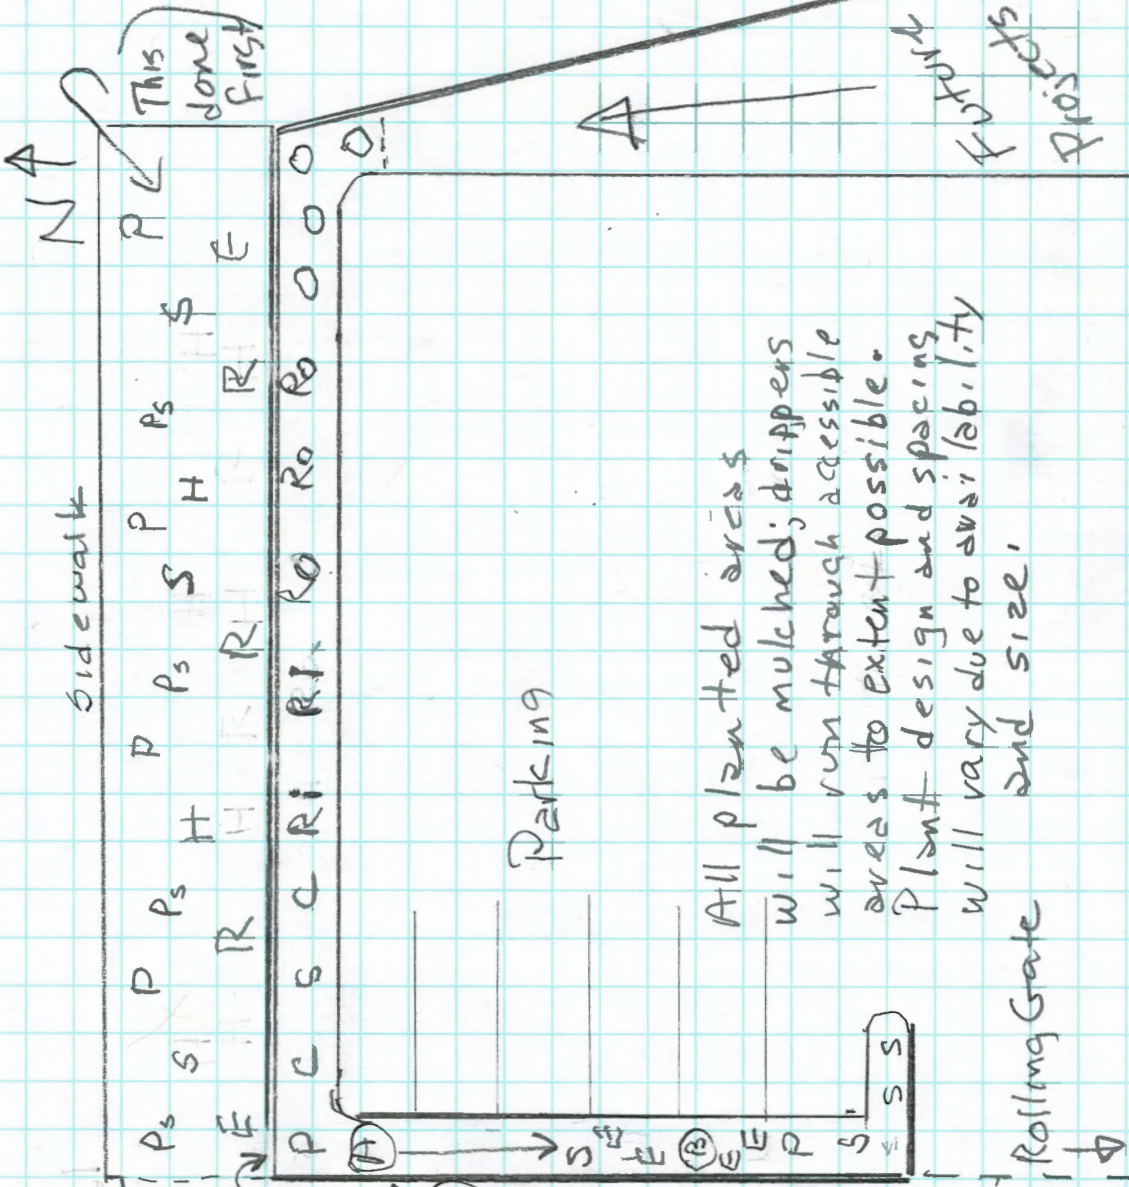 This
done
first
N
Sidewalk
Ps S P Ps H P Ps S P H Ps S P
E R R R E
P C S C Ri RI Ro Ro Ro O O O
O
A
S E E B E E P S
S S
Parking
All plantted areas
will be mulched; drippers
will run through accessible
areas to extent possible.
Plant design and spacing
will vary due to availability
and size.
Rolling Gate
Future
Projects